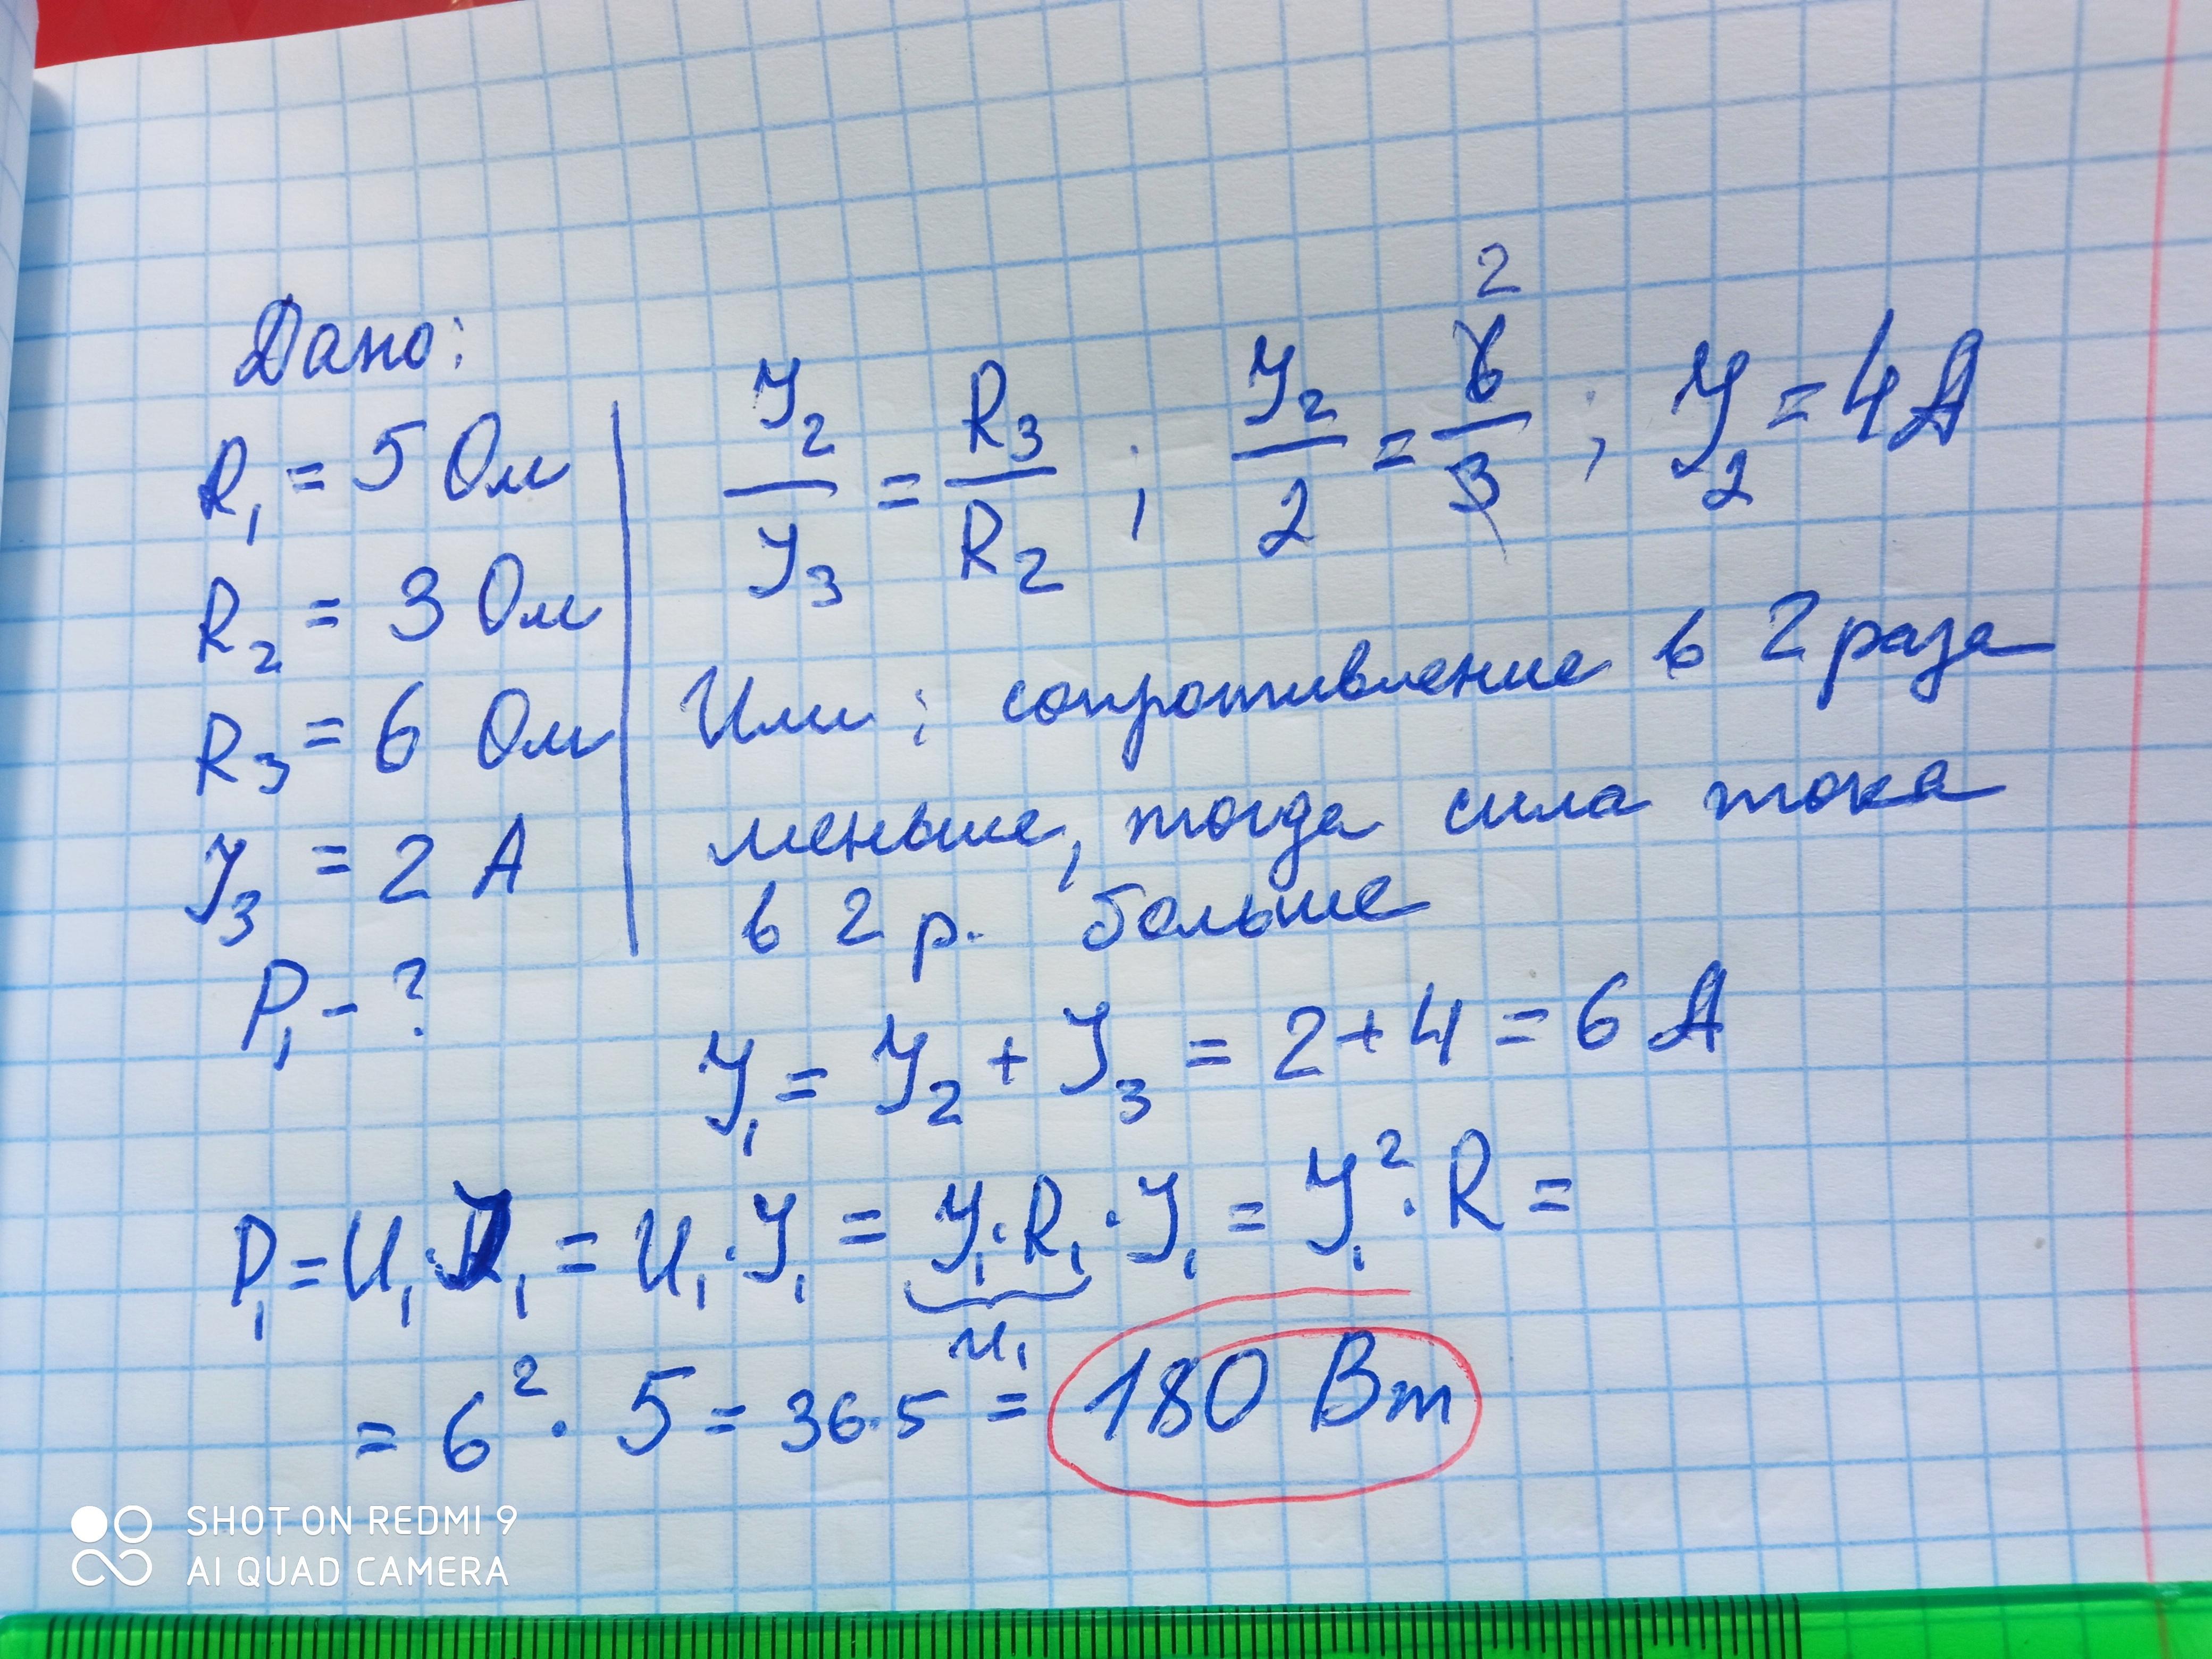 Дано:
R₁ = 5 Ом
R₂ = 3 Ом
R₃ = 6 Ом
У₃ = 2 А
P₁ - ?
У₂/У₃ = R₃/R₂ ; У₂/2 = 6/3 2 ; У₂ = 4 А
Или: сопротивление в 2 раза
меньше, тогда сила тока
в 2 р. больше
У₁ = У₂ + У₃ = 2 + 4 = 6 А
P₁ = U₁ · У₁ = U₁ · У₁ = У₁ · R₁ · У₁ = У₁² · R =
U₁
= 6² · 5 = 36 · 5 = 180 Вт
SHOT ON REDMI 9
AI QUAD CAMERA